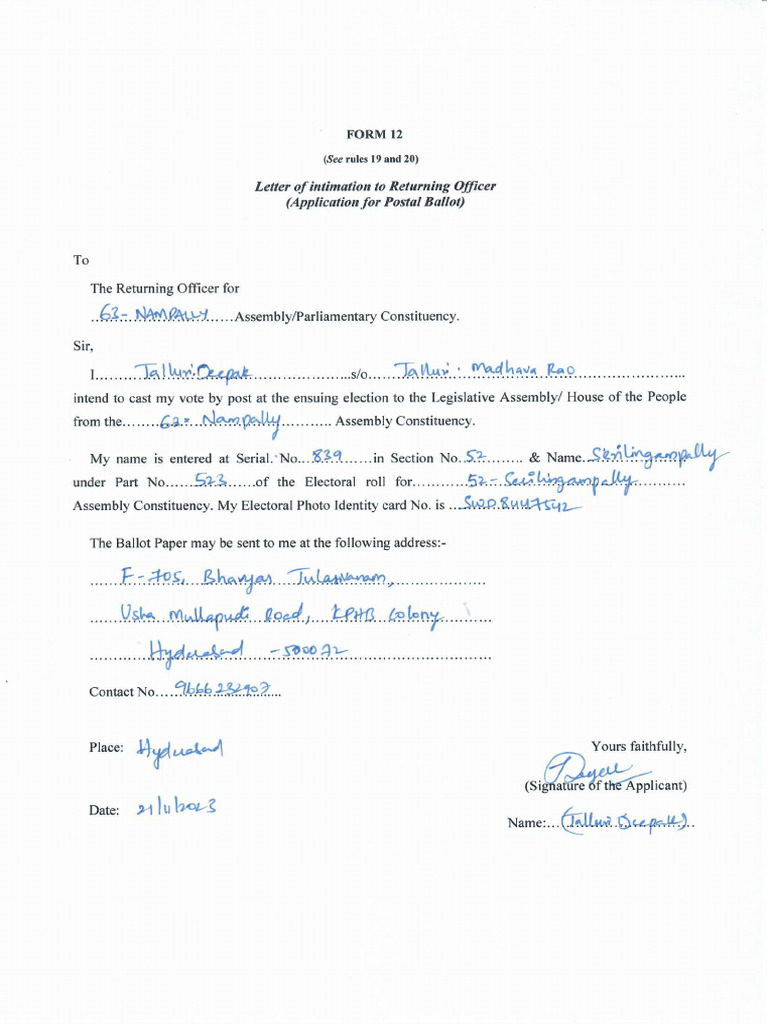 FORM 12
(See rules 19 and 20)
Letter of intimation to Returning Officer
(Application for Postal Ballot)
To
The Returning Officer for
63- NAMPALLY Assembly/Parliamentary Constituency.
Sir,
I Talluri.Deepak s/o Talluri. Madhava Rao
intend to cast my vote by post at the ensuing election to the Legislative Assembly/ House of the People
from the 62- Nampally Assembly Constituency.
My name is entered at Serial. No. 839 in Section No. 52 & Name. Serilingampally
under Part No. 523 of the Electoral roll for 52- Serilingampally
Assembly Constituency. My Electoral Photo Identity card No. is
The Ballot Paper may be sent to me at the following address:-
F-705, Bhavyas Tulasivanam,
Usha Mullapudi Road, KPHB Colony
Hyderabad -500072
Contact No. 9666232907
Place: Hyderabad
Yours faithfully,
(Signature of the Applicant)
Date: 21/11/2023
Name: (Talluri Deepak)